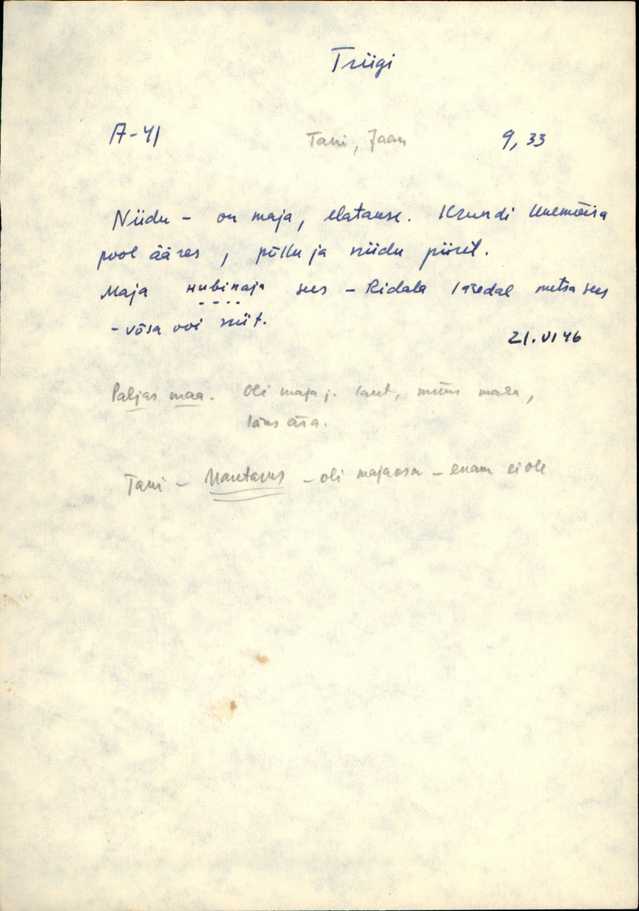 Triigi
A-41 Tani, Jaan 9,33
Niidu - on maja, elatakse. Krundi Uuemõisa
pool ääres, põllu ja niidu piiril.
Maja nubinaja sees - Ridala laredal metsa sees
- võsa või niit. 21.VI 46
Paljas maa. Oli maja j. laut, müüs maha,
läks ära.
Tani - - oli majaosa - enam ei ole